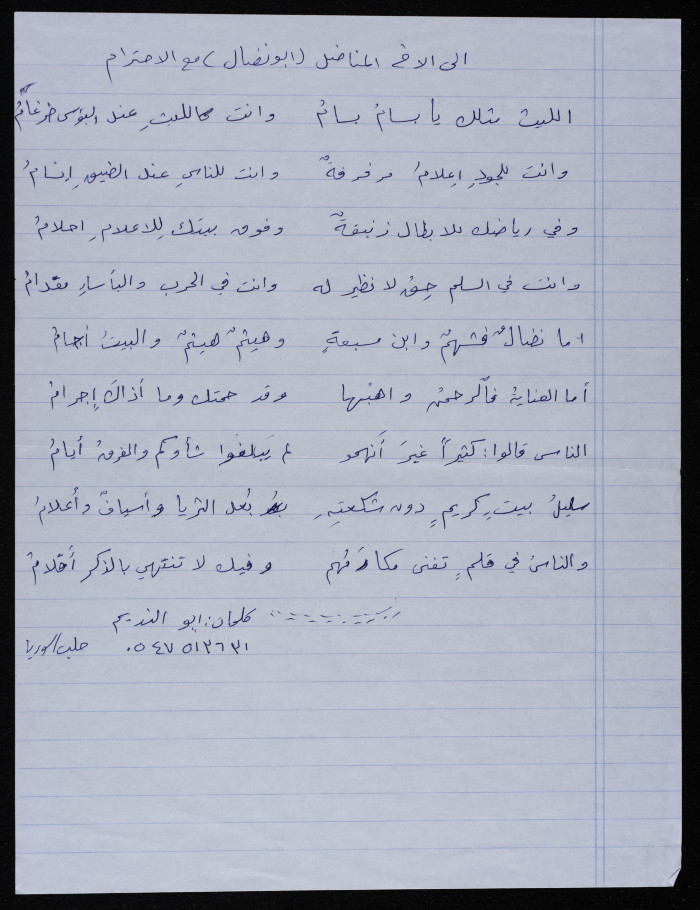 الى الاخ المناضل (ابو نضال) مع الاحترام
الليث مثلك يا بسامُ بسامُ وانت كالليثِ عند البؤس ضرغامُ
وانت للجودِ اعلامُ مرفرفةٌ وانت للناسِ عند الضيقِ إنسامُ
وفي رياضك للابطال زنبقةٌ وفوق بيتك للاعلامِ احلامُ
وانت في السلم لا نظير له وانت في الحرب والبأساءِ مقدامُ
اما نضالٌ فشهمٌ وابن مسبعةٍ وهيثمٌ هيثمٌ والبيتُ
أما العنايةُ فالرحمنُ واهبها وقد حمتك وما أذاكَ إجرامُ
الناس قالوا: كثيراً غيرَ أنهمو لم يَبلغوا شأوكم والفرقُ أيامُ
سليلُ بيتٍ كريمٍ دون بُعد الثريا وأسيافٌ وأعلامُ
والناسُ في قلمٍ تفنى مكارمُهم وفيك لا تنتهي بالذكر أقلامُ
كلمات: ابو النديم
٠٥٤٧٥١٣٦٣١ حلب/سوريا